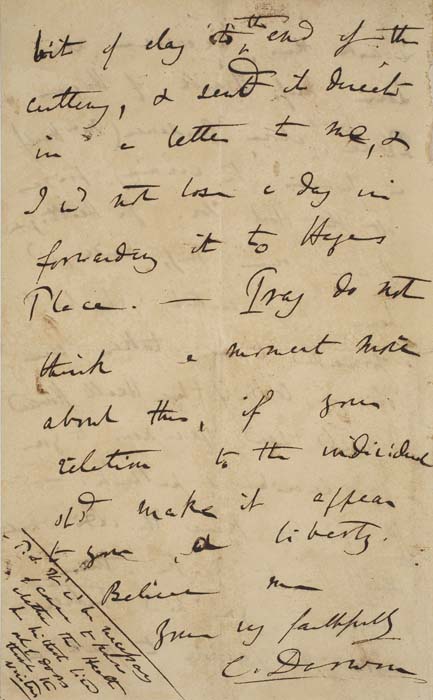 bit of clay to the end of the
cutting, & send it direct
in a letter to me, &
I wd not lose a day in
forwarding it to Hayes
Place. — Pray do not
think a moment more
about this, if your
relation to the individual
shd make it appear
to you a liberty.
Believe me
Yours very faithfully
C. Darwin
P.S. It wd be necessary
of course to
whether the Heath